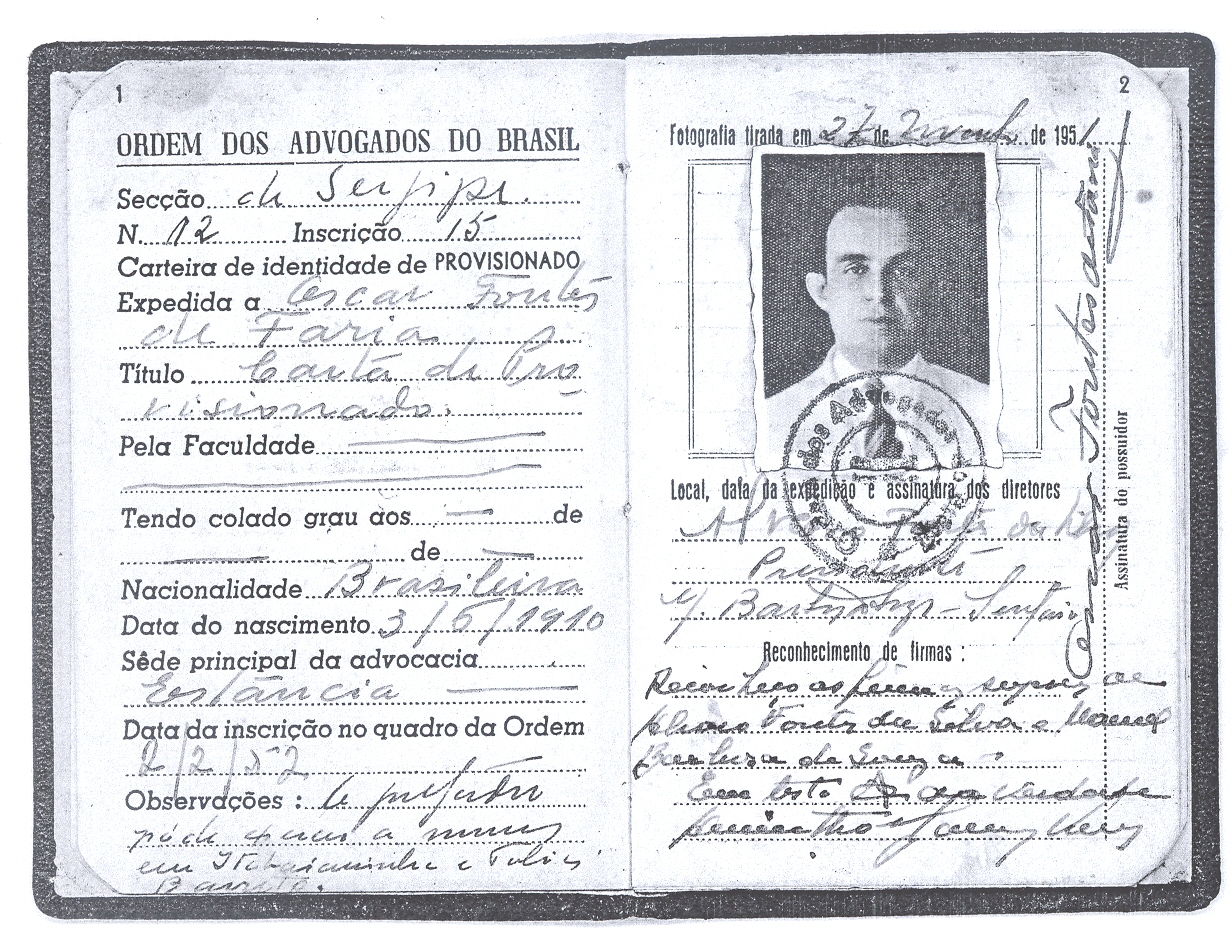 1
ORDEM DOS ADVOGADOS DO BRASIL
Secção de Sergipe.
N. 12 Inscrição 15
Carteira de identidade de PROVISIONADO
Expedida a Oscar Fontes
de Faria
Título Carta de Pro
visionado.
Pela Faculdade
Tendo colado grau aos de
de
Nacionalidade Brasileira
Data do nascimento 3/5/1910
Séde principal da advocacia
Estância
Data da inscrição no quadro da Ordem
2/2/52
Observações :
póde a
em Itabaianinha e Tobias
Barreto.
2
Fotografia tirada em 27 de Novembro de 1951
dos Advogados
Local, data da expedição e assinatura dos diretores
Alvaro Fontes da Silva
Presidente
M. Barbosa
Reconhecimento de firmas :
Reconheço as firmas supras de
Alvaro Fontes da Silva e Manoel
Barboza de Souza
Em testo da verdade
Oscar Fontes de Faria
Assinatura do possuidor